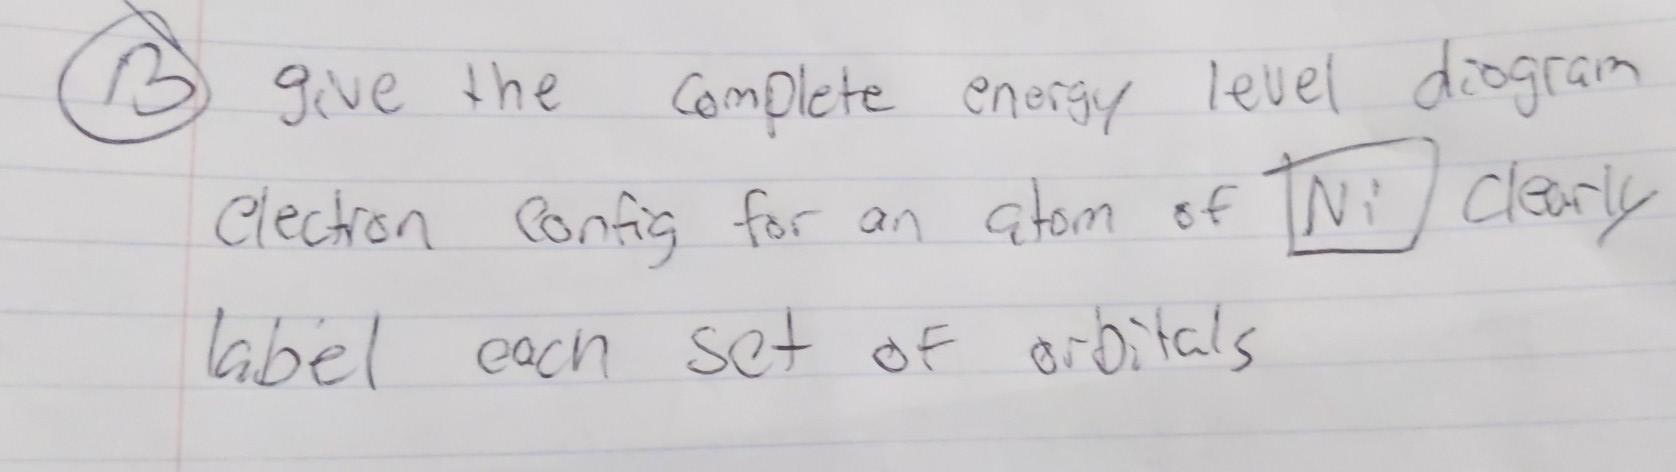 B give the complete energy level diagram
electron config for an atom of Ni clearly
label each set of orbitals